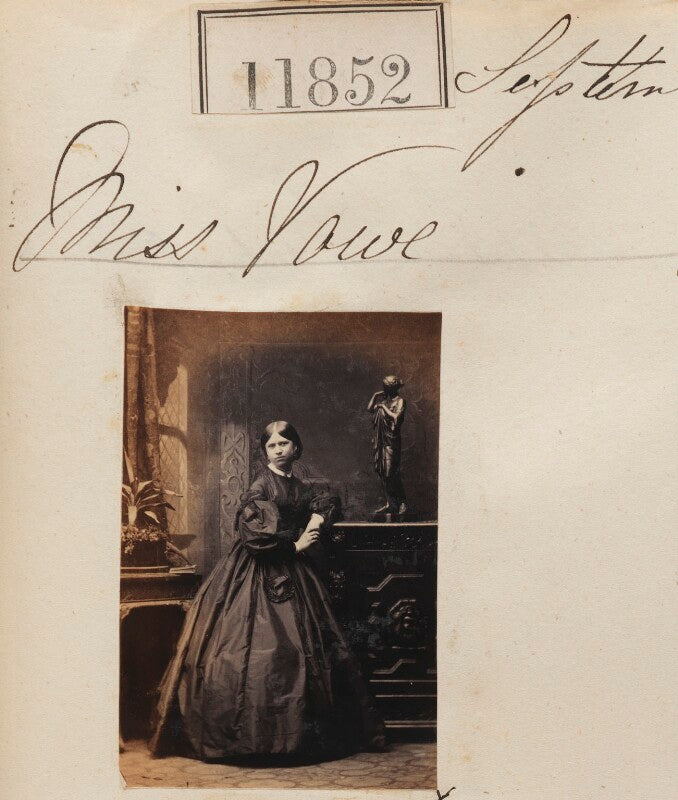 11852
Septem
Miss Vowe